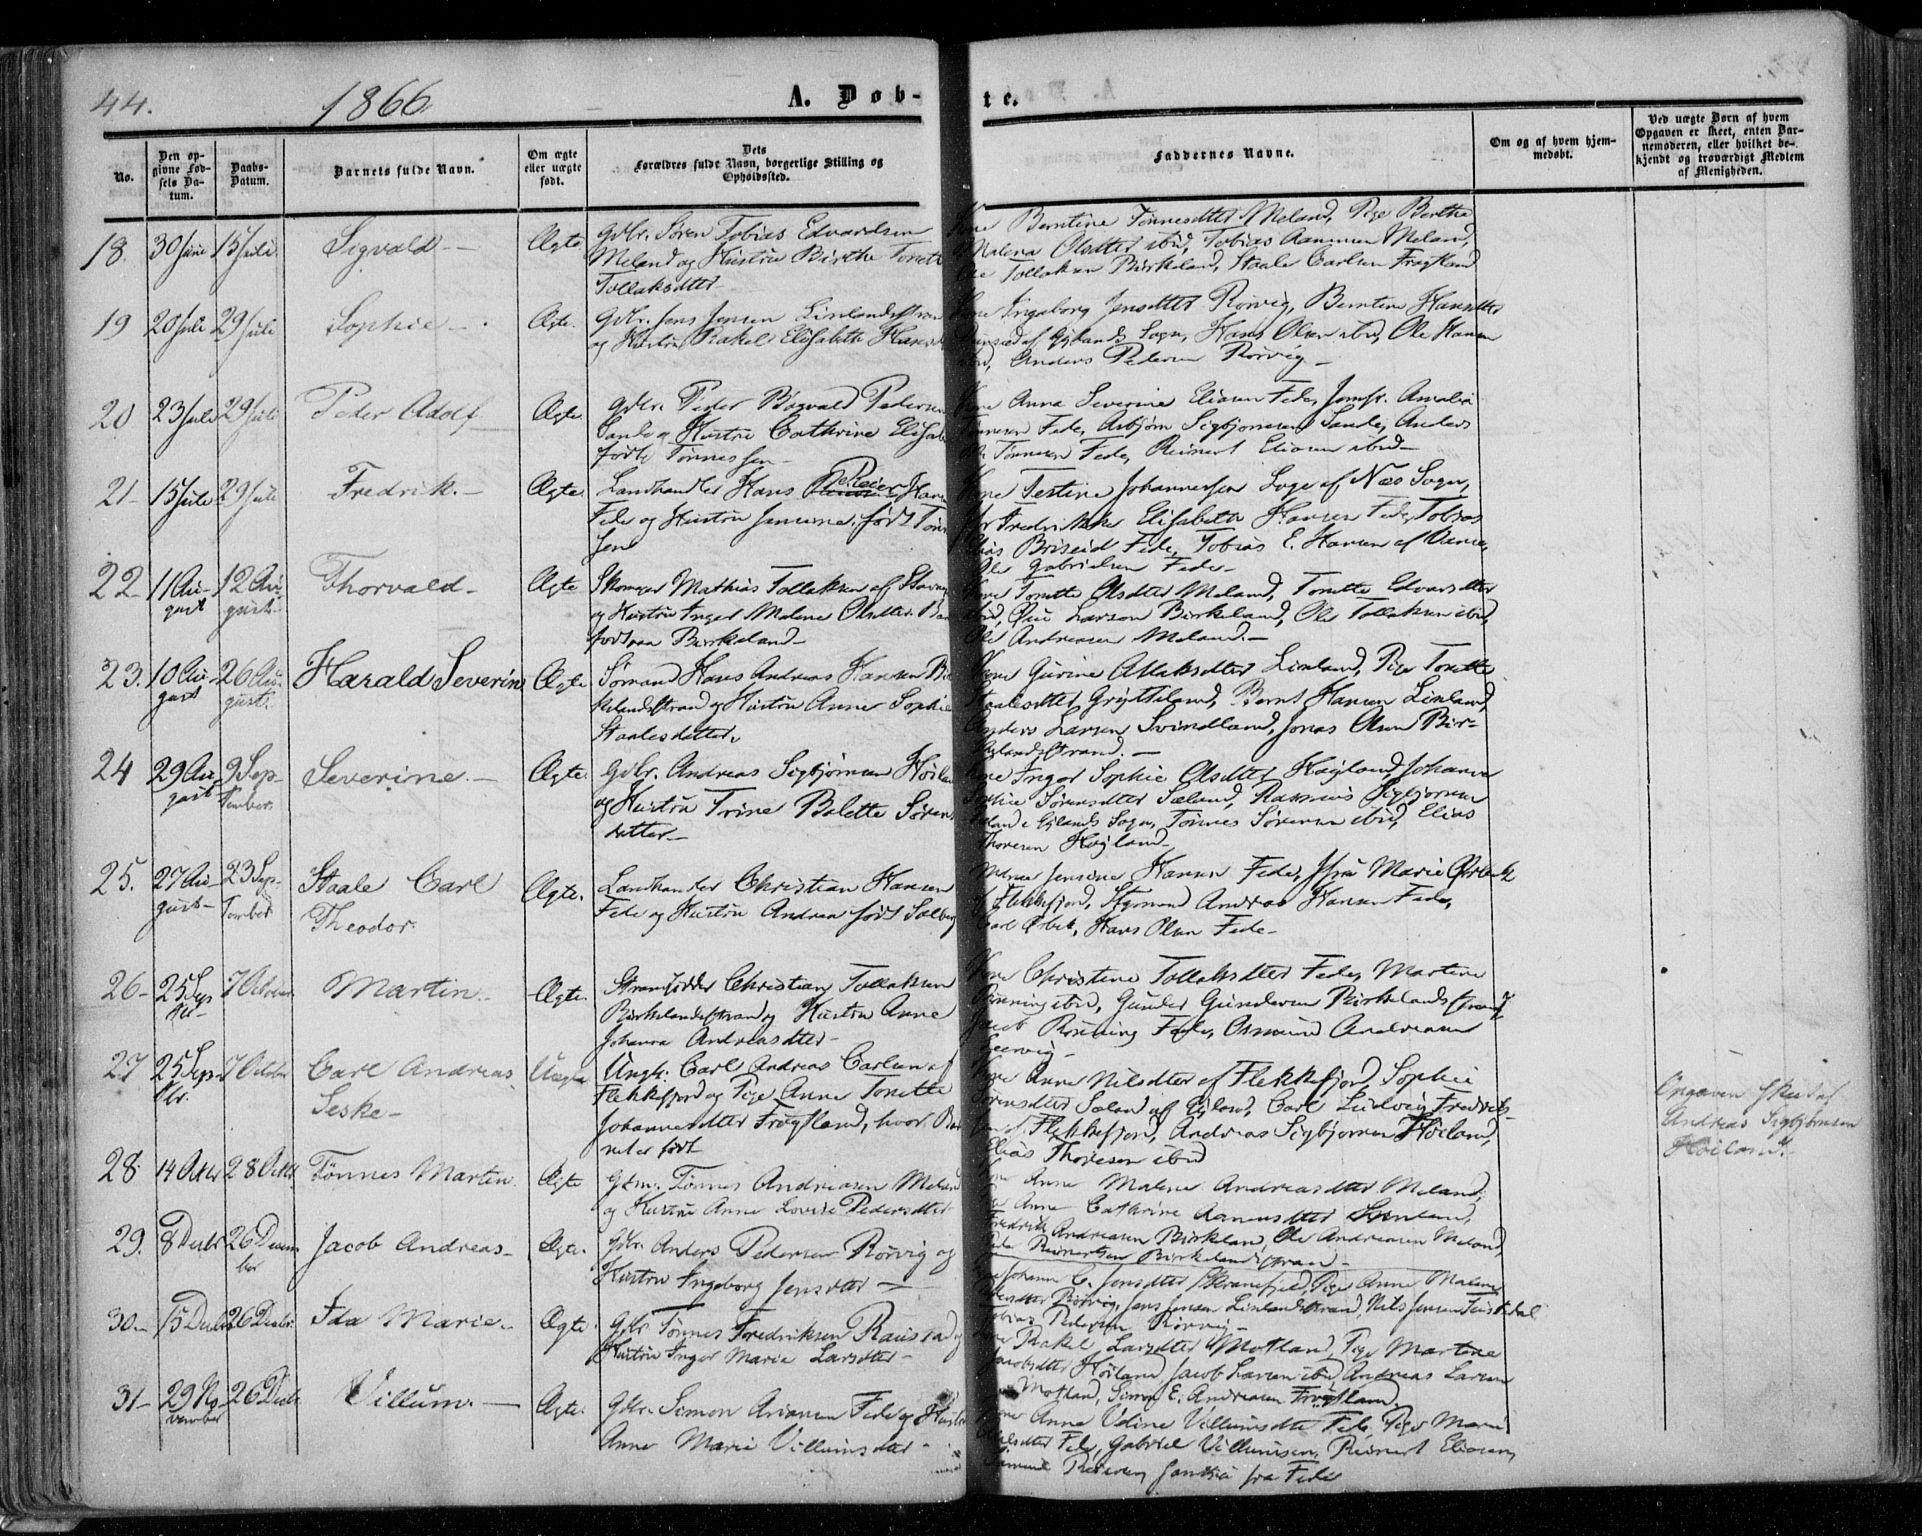 44.
1866
A. Døb-
te.
No.
Den op-
givne Fød-
sels Da-
tum.
Daabs-
Datum.
Barnets fulde Navn.
Om ægte
eller uægte
født.
Dets
Forældres fulde Navn, borgerlige Stilling og
Opholdssted.
Faddernes Navne.
Om og af hvem hjem-
medøbt.
Ved uægte Børn af hvem
Opgaven er skeet, enten Bar-
nemoderen, eller hvilket be-
kjendt og troværdigt Medlem
af Menigheden.
18. 30 Juni 15 Juli Sigvald Ægte
Gdbr. Søren Tobias Edvardsen
Meland og Hustru Birthe Tonette
Tollaksdtter
Kone Berntine Tønnesdtter Meland, Pige Berthe
Malena Olsdtter ibid, Tobias Aanensen Meland,
Ole Tollaksen Birkeland, Staale Carlsen Frøytland
19 20 Juli 29 Juli Sophie Ægte.
Gdbr. Jens Jensen Linlandsstrand
og Hustru Rakel Elisabeth Hansdtter
Kone Ingeborg Jensdtter Rørvig, Berntine Hansdtter
af Gylands Sogn, Hans Olsen ibid, Ole Hansen
ibid, Anders Pedersen Rørvig
20 23 Juli 29 Juli Peder Adolf Ægte.
Gdbr. Peder Bogvald Pedersen
Sande og Hustru Cathrine Elisabeth
født Tønnessen
Kone Anna Severine Eliasen Fede, Jomfr. Amalia
Tønnesen Fede, Asbjørn Sigbjørnsen Sande, Anders
Tønnesen Fede, Reinert Eliasen ibid
21 15 Juli 29 Juli Fredrik. Ægte.
Landhandler Hans Peder Hansen
Fede og Hustru Jensine, født Tønnes
sen
Kone Testine Johannessen Loge af Næs Sogn,
Fredrikke Elisabeth Hansen Fede, Tobias
Elias Briseid Fede, Tobias E. Hansen af
Ole Gabrielsen Fede
22 11 Au-
gust 12 Au-
gust Thorvald Ægte
Skomager Mathias Tollaksen af Stavanger
og Hustru Inger Malene Olsdtter. Barnet
født paa Birkeland
Kone Tonette Olsdtter Meland, Tonette Edvardsdtter
ibid, Larsen Birkeland, Ole Tollaksen ibid,
Ole Andreasen Meland.
23. 10 Au-
gust 26 Au-
gust. Harald Severin Ægte
Sømand Hans Andreas Hansen Bir
kelandsstrand og Hustru Anne Sophie
Staalesdatter.
Kone Gurine Atlaksdtter Linland, Pige Tonette
Staalesdtter Grytteland, Bernt Hansen Linland
Anders Larsen Svindland, Jonas Olsen Bir-
kelandsstrand.
24 29 Au-
gust 9 Sep-
tember. Severine. Ægte.
Gdbr. Andreas Sigbjørnsen Høiland
og Hustru Trine Bolette Sørens
datter
Kone Inger Sophie Olsdtter Høyland, Johanne
Sophie Sørensdtter Sæland, Rasmus Sigbjørnsen
i Gylands Sogn, Tønnes Sørensen ibid, Elias
Thoresen Høyland
25. 27 Au-
gust 23 Sep-
tember Staale Carl
Theodor. Ægte.
Landhandler Christian Hansen
Fede og Hustru Andrea født Salberg
Madam Jensine Hansen Fede, Jfr. Marie Ørbeck
af Flekkefjord, Styrmand Andreas Hansen Fede,
Carl Ørbek, Hans Olsen Fede
26 25 Sep
tbr 7 October Martin. Ægte.
Strandsidder Christian Tollaksen
Birkelandsstrand og Hustru Anne
Johanna Andreasdtter
Kone Christine Tollaksdtter Fede, Martine
Rønning ibid, Gunder Gundersen Birkelandsstrand,
Jacob Rønning Fede, Osmund Andreasen
27 25 Sep-
tbr. 7 October Carl Andreas
Seske Uægte
Ungk. Carl Andreas Carlsen af
Flekkefjord og Pige Anne Tonette
Johannesdtter Frøytland, hvor Bar
net er født
Kone Anne Nilsdtter af Flekkefjord, Sophie
Sørensdtter Sæland af Gyland, Carl Ludvig Fredrik-
sen af Flekkefjord, Andreas Sigbjørnsen Høiland,
Elias Thoresen ibid
Opgaven skeet af
Andreas Sigbjørnsen
Høiland.
28 14 Octbr 28 Octbr. Tønnes Martin. Ægte
Gdm. Tønnes Andreasen Meland
og Hustru Anne Lovise Pedersdtter
Kone Anne Malene Andreasdtter Meland,
Pige Anne Cathrine Aanensdtter Linland,
Fredrik Andreasen Birkeland, Ole Andreasen Meland,
Peder Reinertsen Birkelandsstrand
29. 8 Decbr 26 Decem-
ber Jacob Andreas Ægte.
Gdbr. Anders Pedersen Rørvig og
Hustru Ingeborg Jensdtter
Kone Johanne C. Jensdtter Skranefjeld, Pige Anne Malene
Rørvig, Jens Jensen Linlandsstrand, Nils Jensen
Tobias Pedersen Rørvig
30. 15 Decbr 26 Decbr. Ida Marie. Ægte.
Gdbr Tønnes Fredriksen Raustad og
Hustru Inger Marie Larsdtter
Kone Rakel Larsdtter Motland, Pige Martine
Jacobsdtter Høiland, Jacob Larsen ibid, Andreas Larsen
Motland, Simon E. Andreasen Frøytland.
31 29 No-
vember 26 Decbr Villum. Ægte.
Gdbr. Simon Ariansen Fede og Hustru
Anne Marie Villumsdtter
Kone Anne Udine Villumsdtter Fede, Pige Maren
Fede, Gabriel Villumsen, Reinert Eliasen,
fra Fede